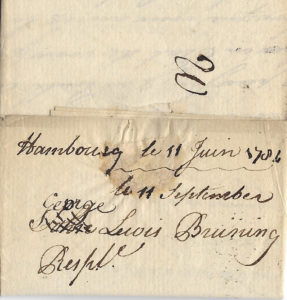 Hambourg le 11 Juin 1784
le 11 September
George
Luois Brüning
Respte.